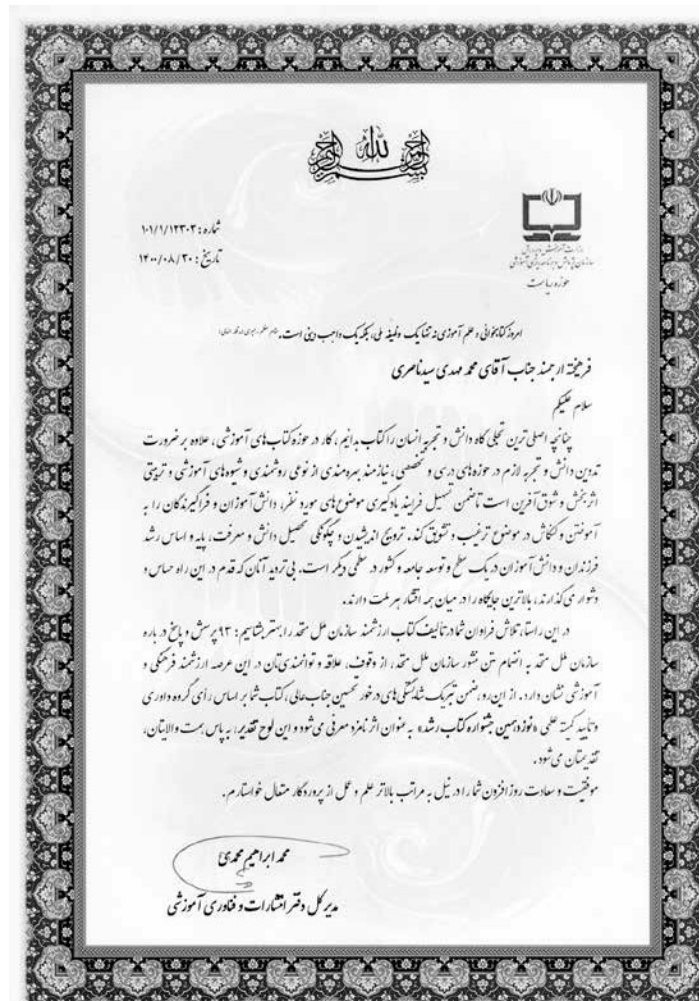 بسم الله الرحمن الرحیم
وزارت آموزش و پرورش
سازمان پژوهش و برنامه‌ریزی آموزشی
حوزه ریاست
شماره: ۱۰۱/۱/۱۲۳۰۲
تاریخ: ۱۴۰۰/۰۸/۳۰
امروز کتابخوانی و علم آموزی نه تنها یک وظیفه ملی، بلکه یک واجب دینی است.
فرهیخته ارجمند جناب آقای محمد مهدی سیدناصری
سلام علیکم
چنانچه اصلی ترین تجلی گاه دانش و تجربه انسان را کتاب بدانیم، کار در حوزه کتاب های آموزشی، علاوه بر ضرورت
تدوین دانش و تجربه لازم در حوزه های درسی و تخصصی، نیازمند بهره مندی از نوعی روشمندی و شیوه های آموزشی و تربیتی
اثربخش و شوق آفرین است تا ضمن تسهیل فرایند یادگیری موضوع های مورد نظر، دانش آموزان و فراگیرندگان را به
آموختن و کنکاش در موضوع ترغیب و تشویق کند. ترویج اندیشیدن و چگونگی تحصیل دانش و معرفت، پایه و اساس رشد
فرزندان و دانش آموزان در یک سطح و توسعه جامعه و کشور در سطحی دیگر است. بی تردید آنان که قدم در این راه حساس و
دشوار می گذارند، بالاترین جایگاه را در میان همه اقشار هر ملت دارند.
در این راستا، تلاش فراوان شما در تألیف کتاب ارزشمند سازمان ملل متحد را بهتر بشناسیم: ۹۳ پرسش و پاسخ در باره
سازمان ملل متحد به انضمام متن منشور سازمان ملل متحد، از وقوف، علاقه و توانمندی تان در این عرصه ارزشمند فرهنگی و
آموزشی نشان دارد. از این رو، ضمن تبریک شایستگی های در خور تحسین جناب عالی، کتاب شما بر اساس رأی گروه داوری
و تأیید کمیته علمی «نوزدهمین جشنواره کتاب رشد» به عنوان اثر نامزد معرفی می شود و این لوح تقدیر، به پاس همت والایتان،
تقدیمتان می شود.
موفقیت و سعادت روزافزون شما را در نیل به مراتب بالاتر علم و عمل از پروردگار متعال خواستارم.
محمد ابراهیم محمدی
مدیر کل دفتر انتشارات و فناوری آموزشی